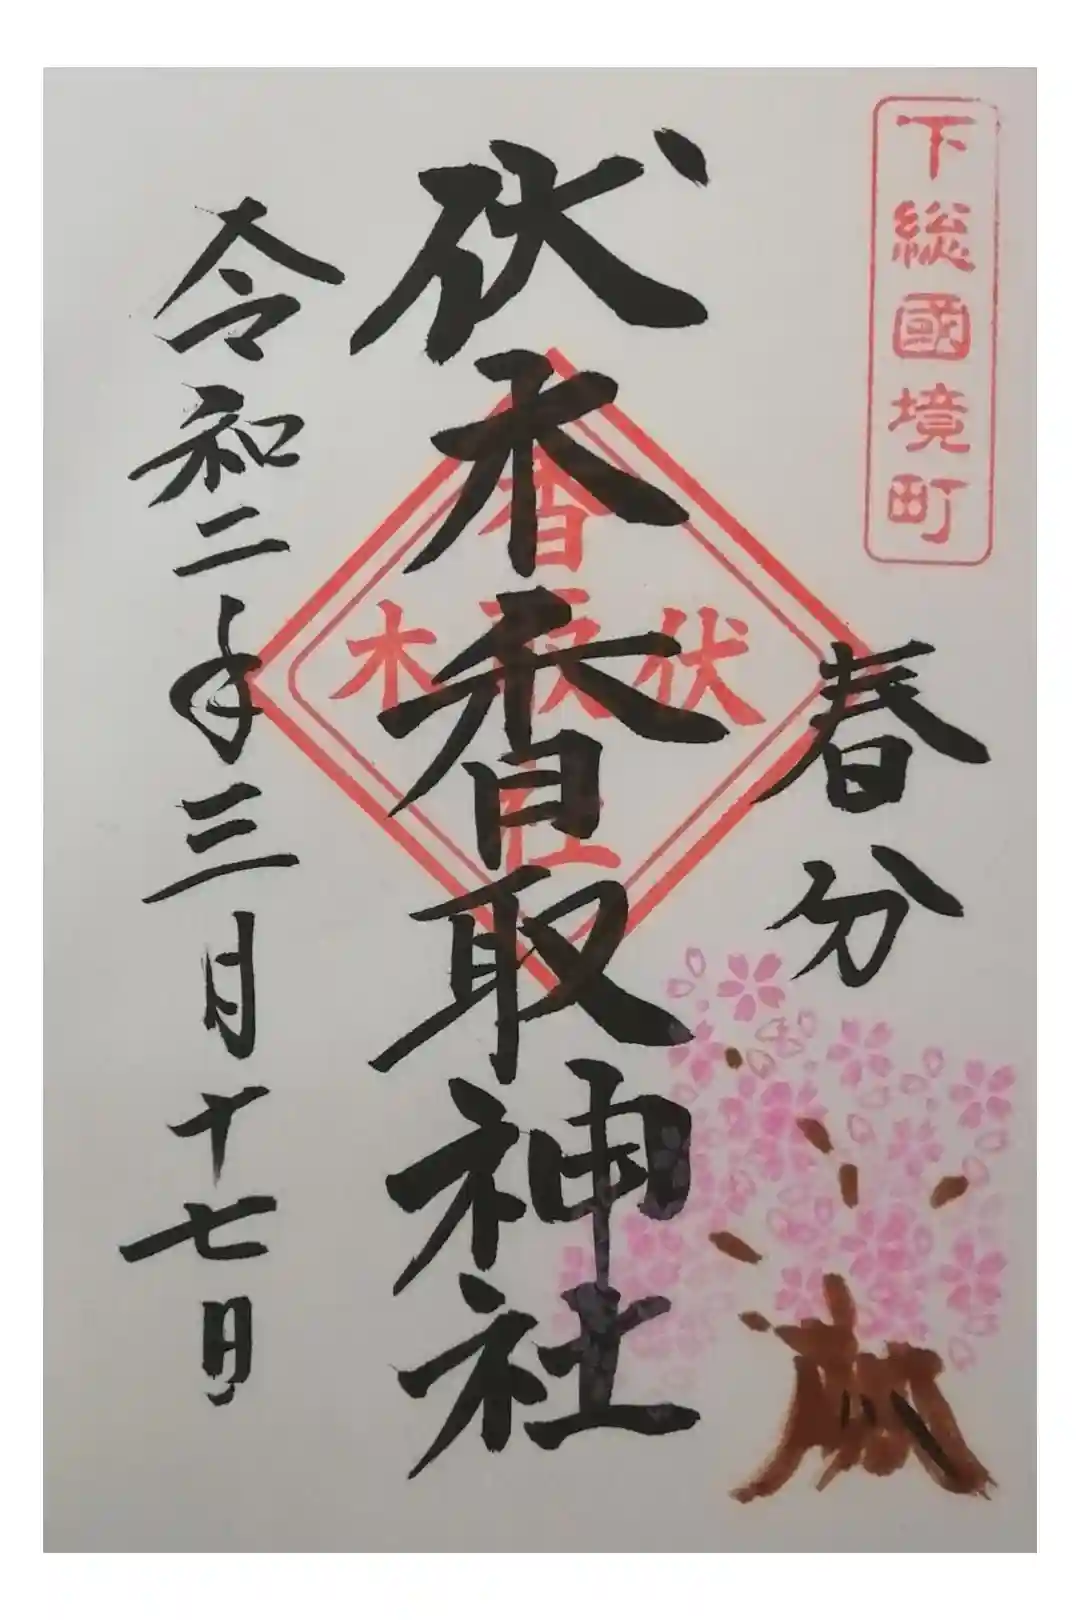 下総國境町
春分
伏木香取神社
伏木
香取
社
令和二年三月十七日